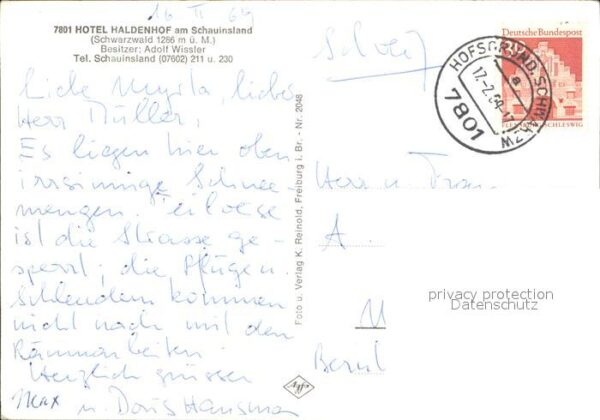 7801 HOTEL HALDENHOF am Schauinsland
(Schwarzwald 1286 m ü. M.)
Besitzer: Adolf Wissler
Tel. Schauinsland (07602) 211 u. 230
16 II 69
Liebe Myrta, lieber
Herr Müller,
Es liegen hier oben
irrsinnige Schnee-
mengen. Teilweise
ist die Strasse ge-
sperrt; die
Schleudern kommen
nicht nach mit den
Räumarbeiten.
Herzlich grüssen
Max u. Doris
Foto u. Verlag K. Reinold, Freiburg i. Br. - Nr. 2048
Agfa
Deutsche Bundespost
HOFSGRUND, SCHWARZW
17.2.69
a
7801
SCHLESWIG
Herr u. Frau
A.
M
privacy protection
Datenschutz